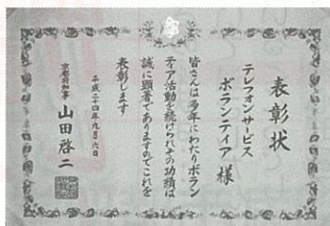 表彰状
テレフォンサービス
ボランティア 様
皆さんは多年にわたりボラン
ティア活動を続けられその功績は
誠に顕著でありますのでこれを
表彰します
平成二十四年九月六日
京都府知事 山田啓二